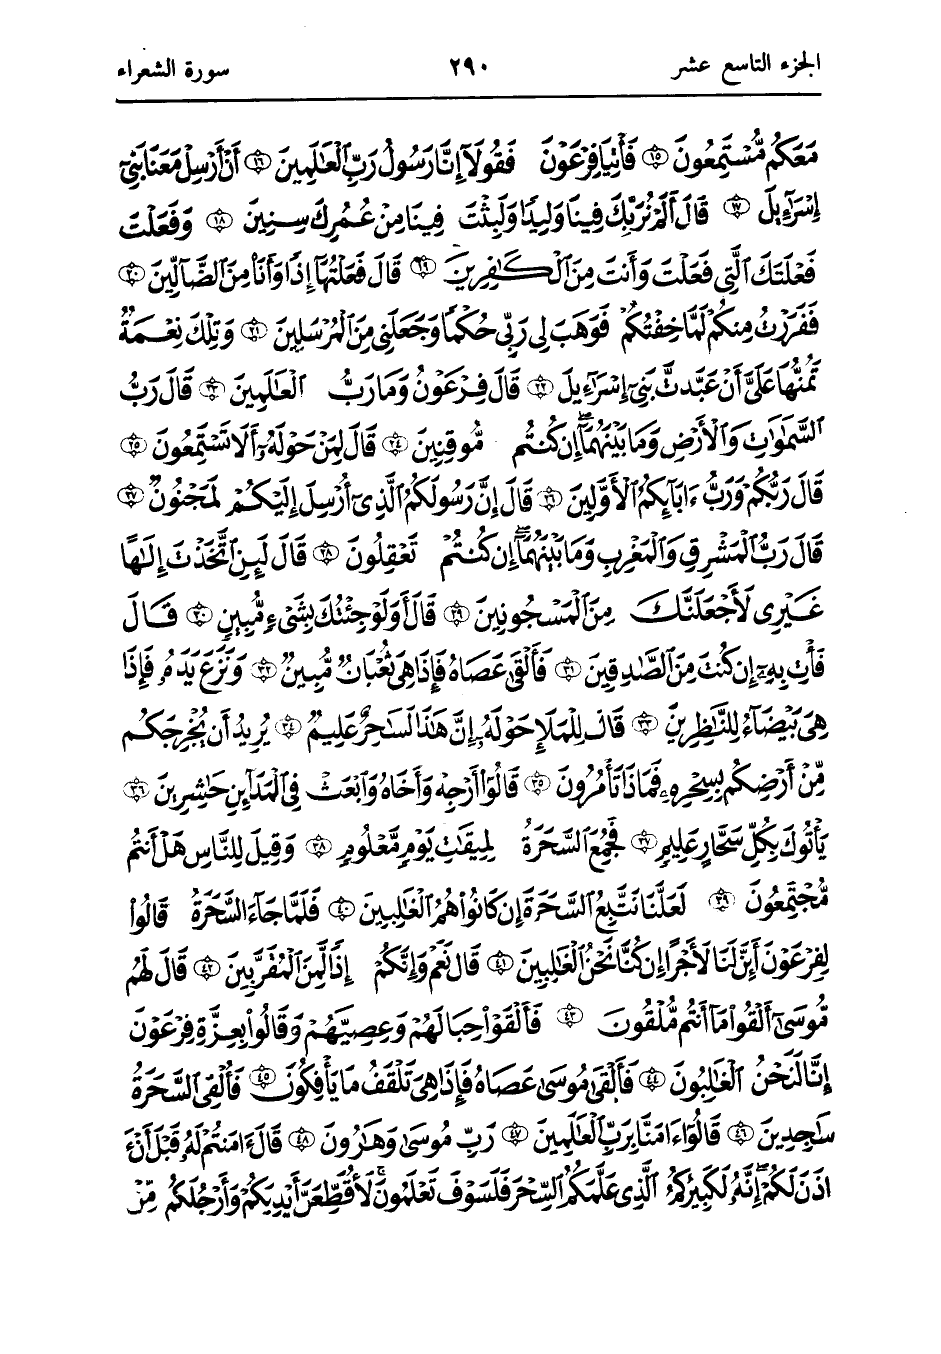 الجزء التاسع عشر ٢٩٠ سورة الشعراء
مَعَكُم مُّسْتَمِعُونَ ١٥ فَأْتِيَا فِرْعَوْنَ فَقُولَآ إِنَّا رَسُولُ رَبِّ ٱلْعَٰلَمِينَ ١٦ أَنْ أَرْسِلْ مَعَنَا بَنِىٓ
إِسْرَٰٓءِيلَ ١٧ قَالَ أَلَمْ نُرَبِّكَ فِينَا وَلِيدًا وَلَبِثْتَ فِينَا مِنْ عُمُرِكَ سِنِينَ ١٨ وَفَعَلْتَ
فَعْلَتَكَ ٱلَّتِى فَعَلْتَ وَأَنتَ مِنَ ٱلْكَٰفِرِينَ ١٩ قَالَ فَعَلْتُهَآ إِذًا وَأَنَا۠ مِنَ ٱلضَّآلِّينَ ٢٠
فَفَرَرْتُ مِنكُمْ لَمَّا خِفْتُكُمْ فَوَهَبَ لِى رَبِّى حُكْمًا وَجَعَلَنِى مِنَ ٱلْمُرْسَلِينَ ٢١ وَتِلْكَ نِعْمَةٌ
تَمُنُّهَا عَلَىَّ أَنْ عَبَّدتَّ بَنِىٓ إِسْرَٰٓءِيلَ ٢٢ قَالَ فِرْعَوْنُ وَمَا رَبُّ ٱلْعَٰلَمِينَ ٢٣ قَالَ رَبُّ
ٱلسَّمَٰوَٰتِ وَٱلْأَرْضِ وَمَا بَيْنَهُمَآ إِن كُنتُم مُّوقِنِينَ ٢٤ قَالَ لِمَنْ حَوْلَهُۥٓ أَلَا تَسْتَمِعُونَ ٢٥
قَالَ رَبُّكُمْ وَرَبُّ ءَابَآئِكُمُ ٱلْأَوَّلِينَ ٢٦ قَالَ إِنَّ رَسُولَكُمُ ٱلَّذِىٓ أُرْسِلَ إِلَيْكُمْ لَمَجْنُونٌ ٢٧
قَالَ رَبُّ ٱلْمَشْرِقِ وَٱلْمَغْرِبِ وَمَا بَيْنَهُمَآ إِن كُنتُمْ تَعْقِلُونَ ٢٨ قَالَ لَئِنِ ٱتَّخَذْتَ إِلَٰهًا
غَيْرِى لَأَجْعَلَنَّكَ مِنَ ٱلْمَسْجُونِينَ ٢٩ قَالَ أَوَلَوْ جِئْتُكَ بِشَىْءٍ مُّبِينٍ ٣٠ قَالَ
فَأْتِ بِهِۦٓ إِن كُنتَ مِنَ ٱلصَّٰدِقِينَ ٣١ فَأَلْقَىٰ عَصَاهُ فَإِذَا هِىَ ثُعْبَانٌ مُّبِينٌ ٣٢ وَنَزَعَ يَدَهُۥ فَإِذَا
هِىَ بَيْضَآءُ لِلنَّٰظِرِينَ ٣٣ قَالَ لِلْمَلَإِ حَوْلَهُۥٓ إِنَّ هَٰذَا لَسَٰحِرٌ عَلِيمٌ ٣٤ يُرِيدُ أَن يُخْرِجَكُم
مِّنْ أَرْضِكُم بِسِحْرِهِۦ فَمَاذَا تَأْمُرُونَ ٣٥ قَالُوٓا۟ أَرْجِهْ وَأَخَاهُ وَٱبْعَثْ فِى ٱلْمَدَآئِنِ حَٰشِرِينَ ٣٦
يَأْتُوكَ بِكُلِّ سَحَّارٍ عَلِيمٍ ٣٧ فَجُمِعَ ٱلسَّحَرَةُ لِمِيقَٰتِ يَوْمٍ مَّعْلُومٍ ٣٨ وَقِيلَ لِلنَّاسِ هَلْ أَنتُم
مُّجْتَمِعُونَ ٣٩ لَعَلَّنَا نَتَّبِعُ ٱلسَّحَرَةَ إِن كَانُوا۟ هُمُ ٱلْغَٰلِبِينَ ٤٠ فَلَمَّا جَآءَ ٱلسَّحَرَةُ قَالُوا۟
لِفِرْعَوْنَ أَئِنَّ لَنَا لَأَجْرًا إِن كُنَّا نَحْنُ ٱلْغَٰلِبِينَ ٤١ قَالَ نَعَمْ وَإِنَّكُمْ إِذًا لَّمِنَ ٱلْمُقَرَّبِينَ ٤٢ قَالَ لَهُم
مُّوسَىٰٓ أَلْقُوا۟ مَآ أَنتُم مُّلْقُونَ ٤٣ فَأَلْقَوْا۟ حِبَالَهُمْ وَعِصِيَّهُمْ وَقَالُوا۟ بِعِزَّةِ فِرْعَوْنَ
إِنَّا لَنَحْنُ ٱلْغَٰلِبُونَ ٤٤ فَأَلْقَىٰ مُوسَىٰ عَصَاهُ فَإِذَا هِىَ تَلْقَفُ مَا يَأْفِكُونَ ٤٥ فَأُلْقِىَ ٱلسَّحَرَةُ
سَٰجِدِينَ ٤٦ قَالُوٓا۟ ءَامَنَّا بِرَبِّ ٱلْعَٰلَمِينَ ٤٧ رَبِّ مُوسَىٰ وَهَٰرُونَ ٤٨ قَالَ ءَامَنتُمْ لَهُۥ قَبْلَ أَنْ ءَ
اذَنَ لَكُمْ إِنَّهُۥ لَكَبِيرُكُمُ ٱلَّذِى عَلَّمَكُمُ ٱلسِّحْرَ فَلَسَوْفَ تَعْلَمُونَ لَأُقَطِّعَنَّ أَيْدِيَكُمْ وَأَرْجُلَكُم مِّنْ